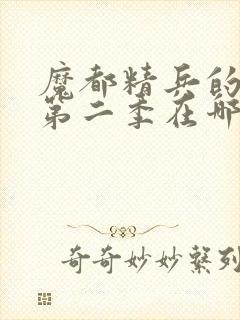 魔都精兵的
第二季在哪
奇奇妙妙系列